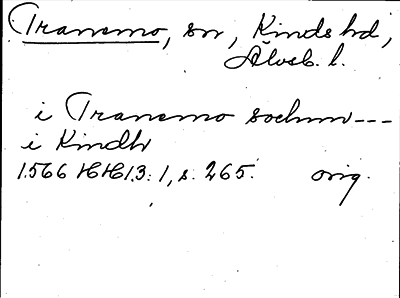 Tranemo, sn, Kinds hd,
Älvsb. l.
i Tranemo sochnn ---
i Kindh
1566 HH 13:1, s. 265. orig.